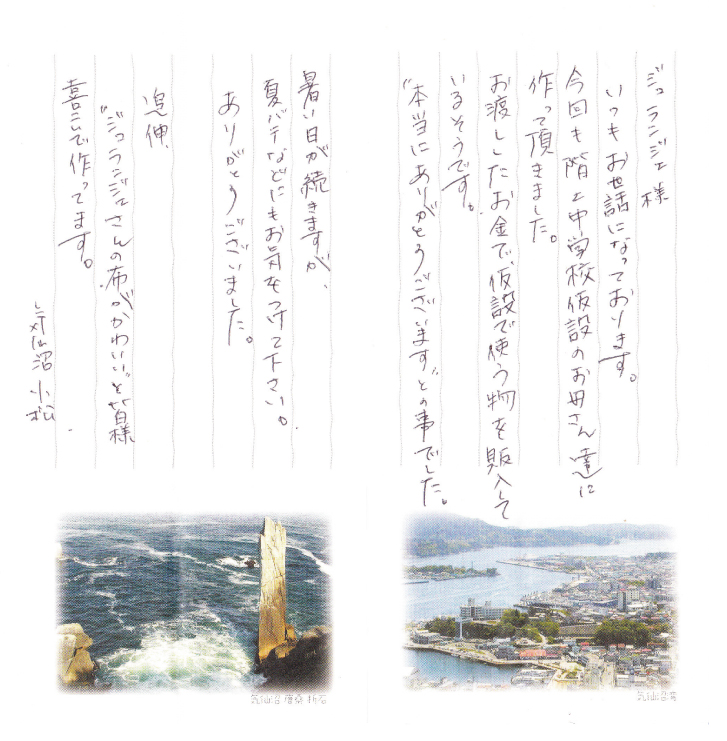 ジュランジェ様
いつもお世話になっております。
今回も階上中学校仮設のお母さん達に
作って頂きました。
お渡ししたお金で、仮設で使う物を販入して
いるそうです。
"本当にありがとうございます"との事でした。
暑い日が続きますが、
夏バテなどにもお気をつけて下さい。
ありがとうございました。
追伸、
"ジュランジェさんの布がかわいい"と皆様
喜こんで作ってます。
気仙沼 小松
気仙沼 唐桑 折石
気仙沼湾